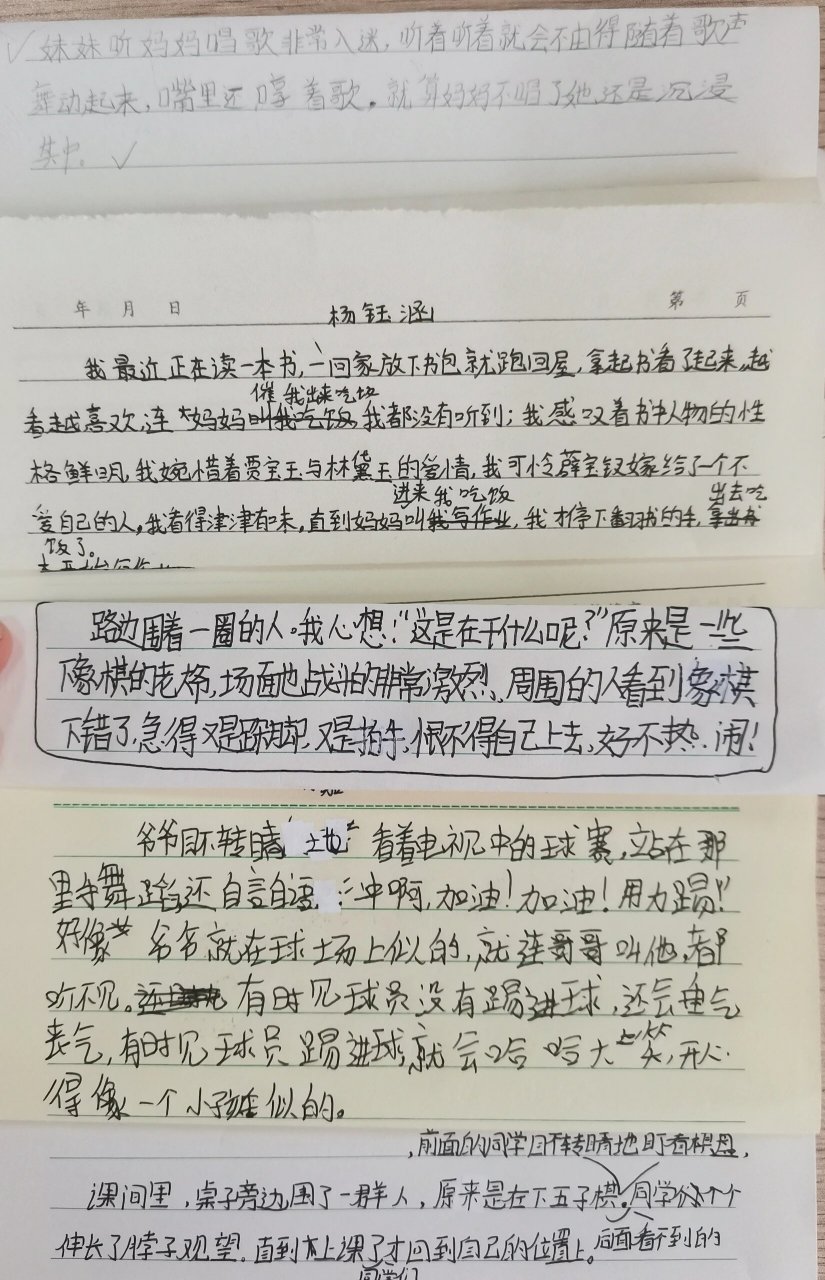 ✓妹妹听妈妈唱歌非常入迷,听着听着就会不由得随着歌声
舞动起来,嘴里还哼着歌。就算妈妈不唱了她还是沉浸
其中。✓
年 月 日 杨钰涵 第 页
我最近正在读一本书,一回家放下书包就跑回屋,拿起书看了起来,越
催我出来吃饭
看越喜欢,连妈妈叫我吃饭我都没有听到;我感叹着书中人物的性
格鲜明,我婉惜着贾宝玉与林黛玉的爱情,我可怜薛宝钗嫁给了一个不
进来我吃饭 出去吃
爱自己的人,我看得津津有味,直到妈妈叫我写作业,我才停下翻书的手,拿出书
饭了。
路边围着一圈的人。我心想:“这是在干什么呢?”原来是一些
下象棋的老爷,场面也战斗的非常激烈、周围的人看到象棋
下错了,急得又是跺脚,又是拍手,恨不得自己上去,好不热闹!
爷爷目不转睛地看着电视中的球赛,站在那
里手舞足蹈,还自言自语:“冲啊,加油!加油!用力踢!”
好像爷爷就在球场上似的,就连哥哥叫他,都
听不见。有时见球员没有踢进球,还会垂气
丧气,有时见球员踢进球,就会哈哈大笑,开心
得像一个小孩似的。
,前面的同学目不转睛地盯着棋盘,
课间里,桌子旁边围了一群人,原来是在下五子棋。同学们个个
伸长了脖子观望。直到上课了才回到自己的位置上。后面看不到的
同学们